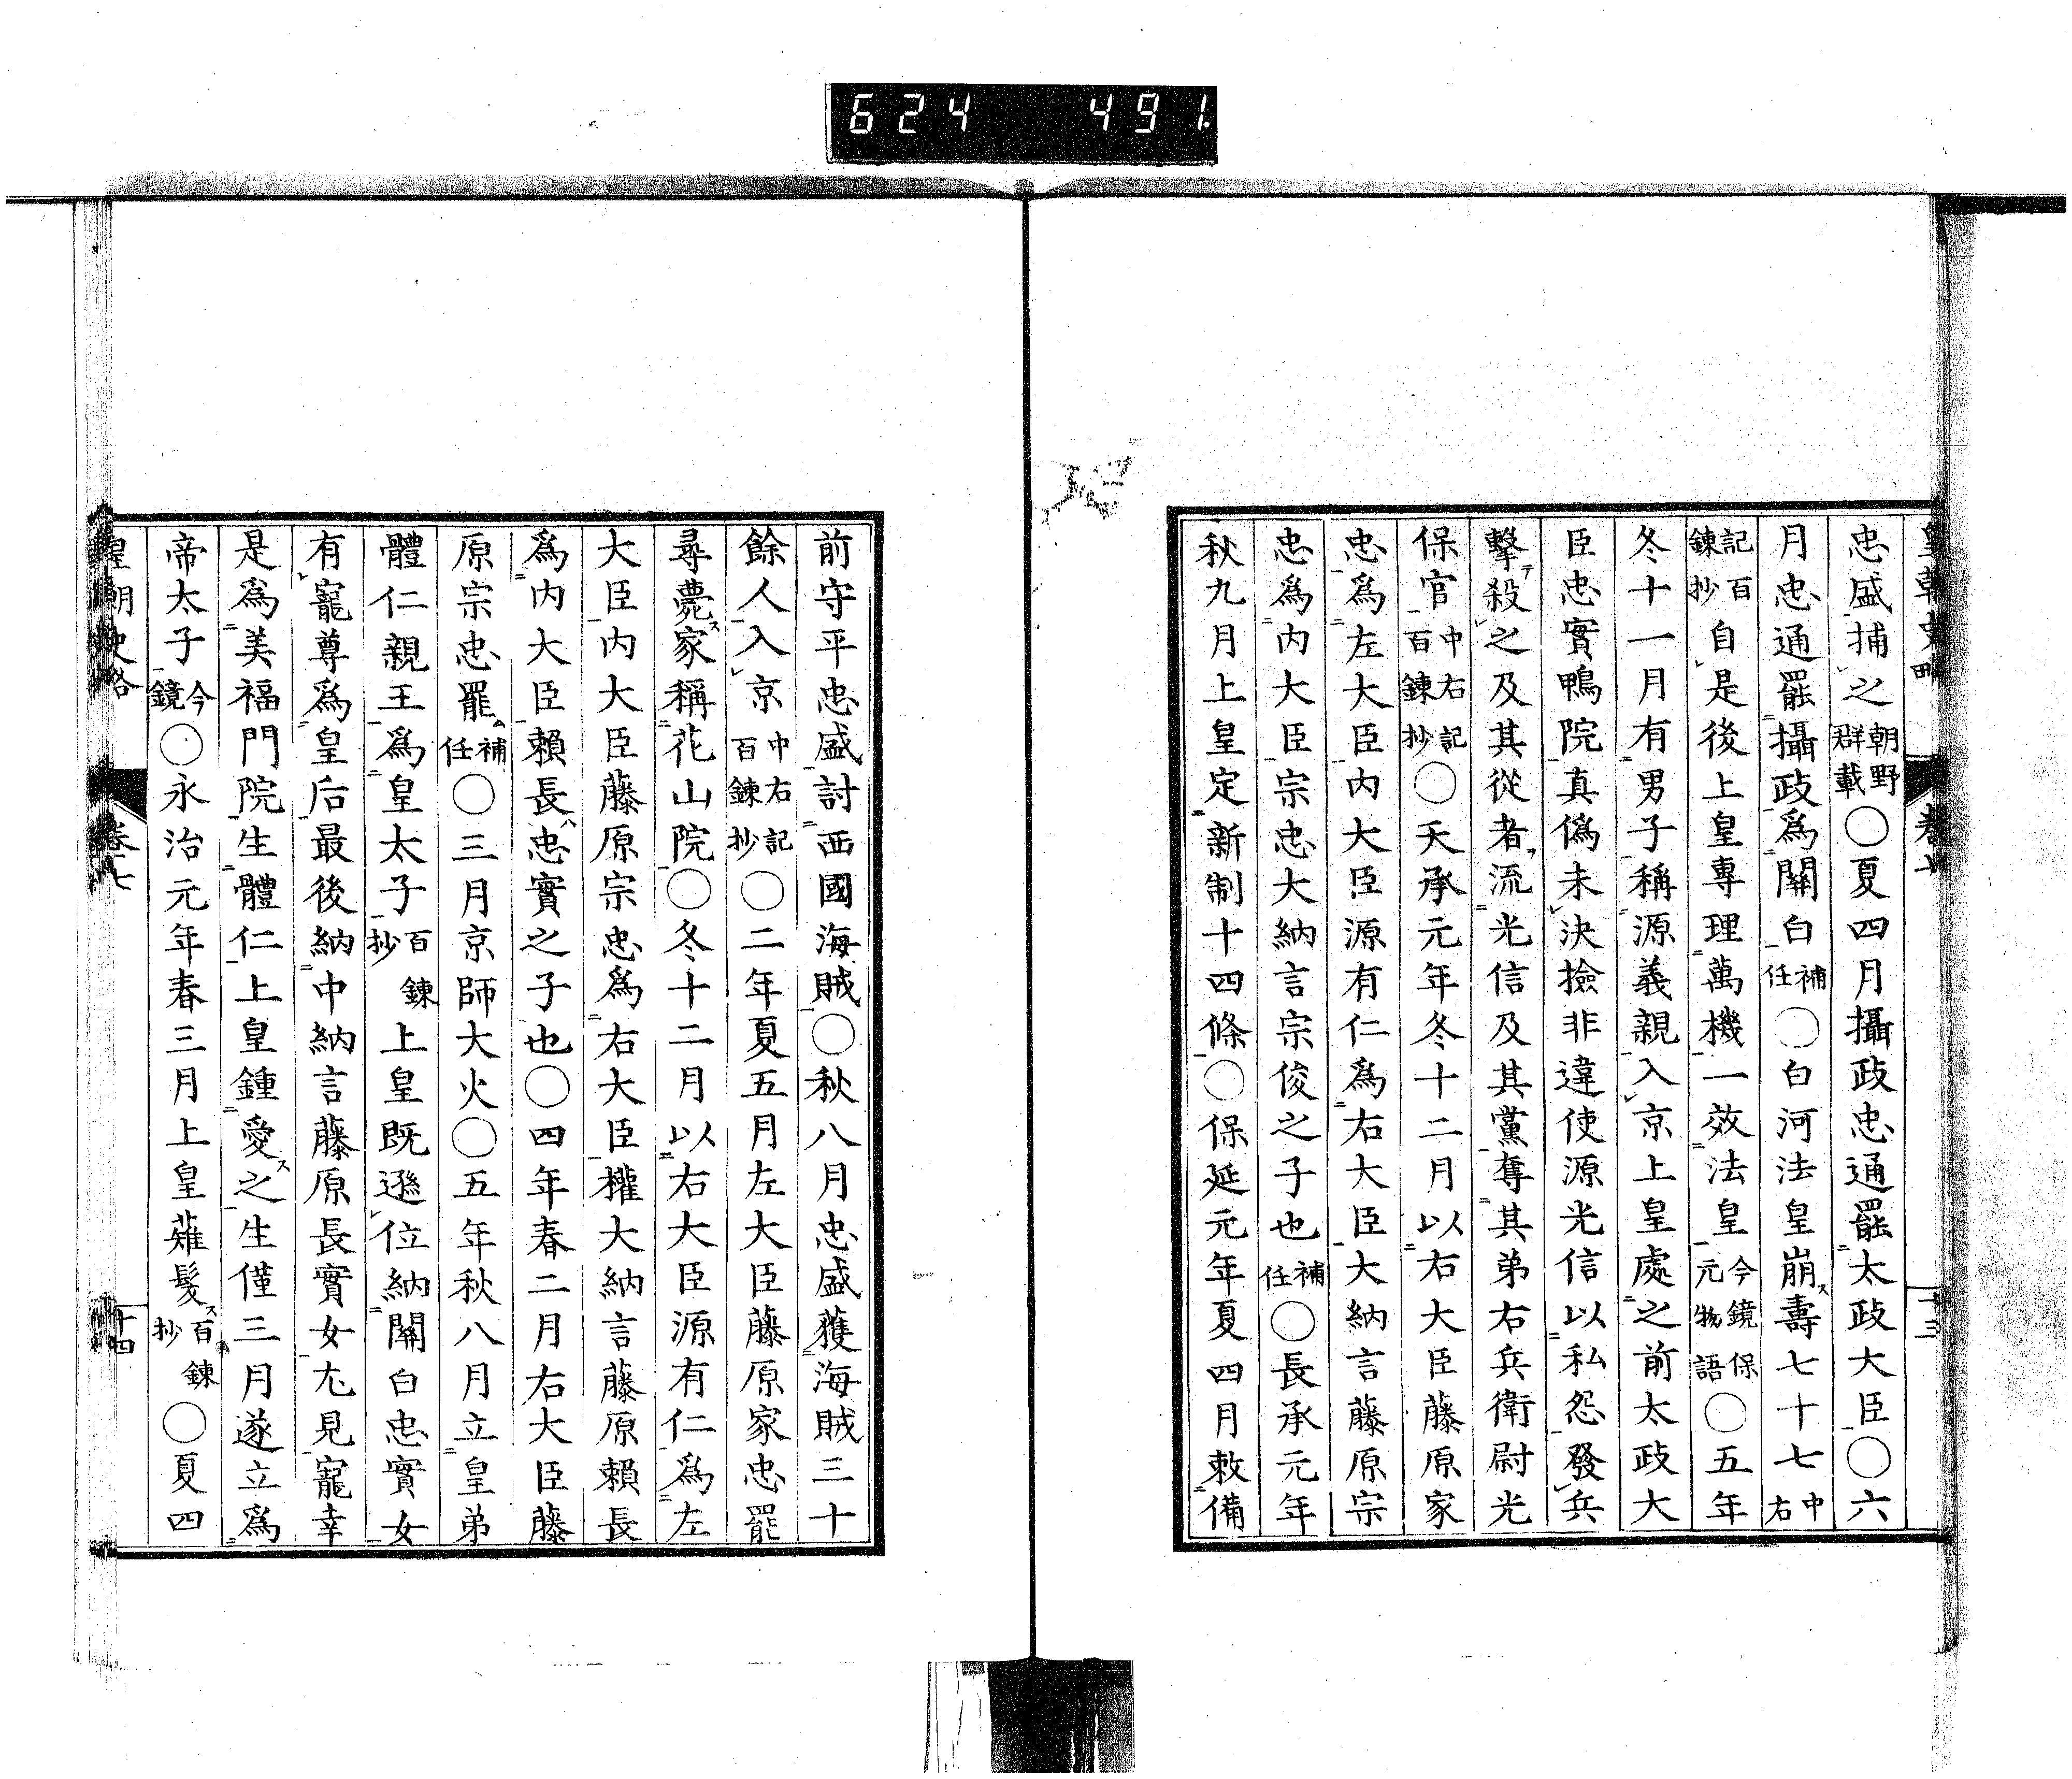 624 491
皇朝史略 卷七 十三
忠盛捕之朝野群載○夏四月攝政忠通罷太政大臣○六
月忠通罷攝政爲關白補任○白河法皇崩ス壽七十七中右
記百鍊抄自是後上皇專理萬機一效法皇今鏡保元物語○五年
冬十一月有男子稱源義親入京上皇處之前太政大
臣忠實鴨院真僞未決撿非違使源光信以私怨發兵
擊テ殺之及其從者流光信及其黨奪其弟右兵衛尉光
保官中右記百鍊抄○天承元年冬十二月以右大臣藤原家
忠爲左大臣內大臣源有仁爲右大臣大納言藤原宗
忠爲内大臣宗忠大納言宗俊之子也補任○長承元年
秋九月上皇定新制十四條○保延元年夏四月敕備
前守平忠盛討西國海賊○秋八月忠盛獲海賊三十
餘人入京中右記百鍊抄○二年夏五月左大臣藤原家忠罷
尋薨ス家稱花山院○冬十二月以右大臣源有仁爲左
大臣内大臣藤原宗忠爲右大臣權大納言藤原賴長
爲内大臣賴長ハ忠實之子也○四年春二月右大臣藤
原宗忠罷補任○三月京師大火○五年秋八月立皇弟
體仁親王爲皇太子百鍊抄上皇既遜位納關白忠實女
有寵尊爲皇后最後納中納言藤原長實女尤見寵幸
是爲美福門院生體仁上皇鍾愛ス之生僅三月遂立爲
帝太子今鏡○永治元年春三月上皇薙髮ス百鍊抄○夏四
皇朝史略 卷七 十四